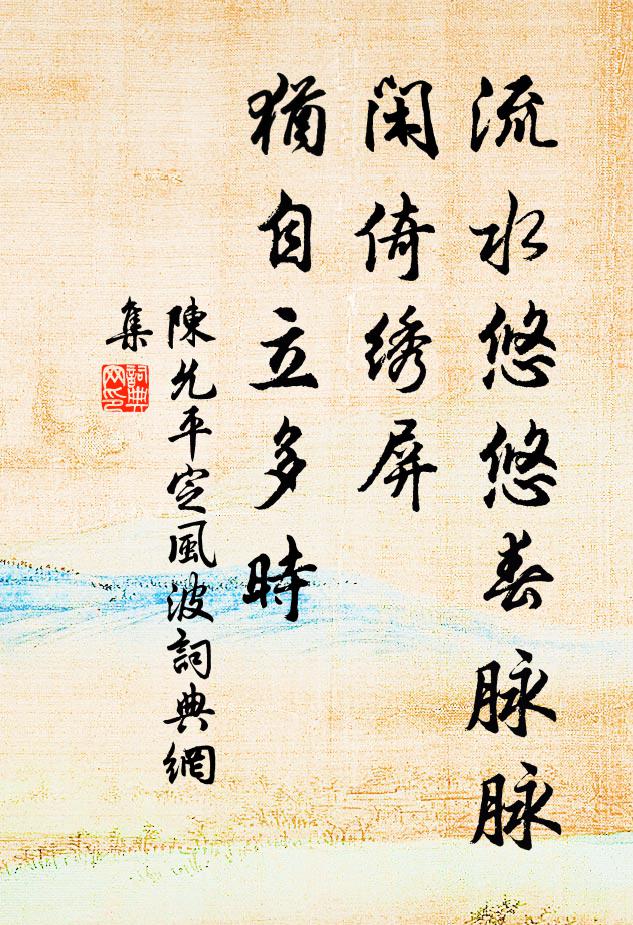 流水悠悠春脉脉
闲倚绣屏
猶自立多時
陳允平定風波詞典網
集
詞典
网印